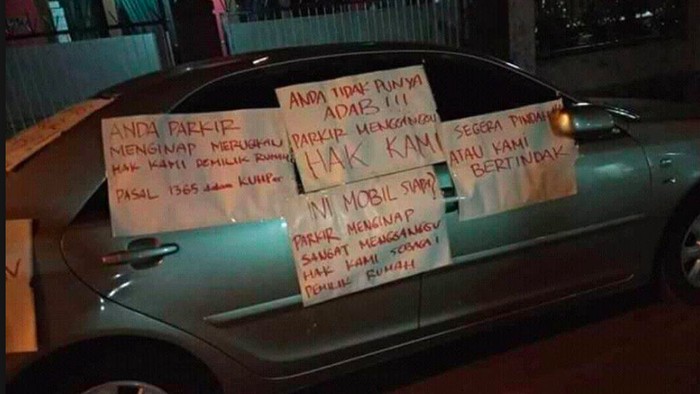 ANDA PARKIR
MENGINAP MERUGIKAN
HAK KAMI PEMILIK RUMAH
PASAL 1365 dalam KUHPer
ANDA TIDAK PUNYA
ADAB!!!
PARKIR MENGGANGGU
HAK KAMI
SEGERA PINDAHKAN
ATAU KAMI
BERTINDAK
INI MOBIL SIAPA?
PARKIR MENGINAP
SANGAT MENGGANGGU
HAK KAMI SEBAGAI
PEMILIK RUMAH